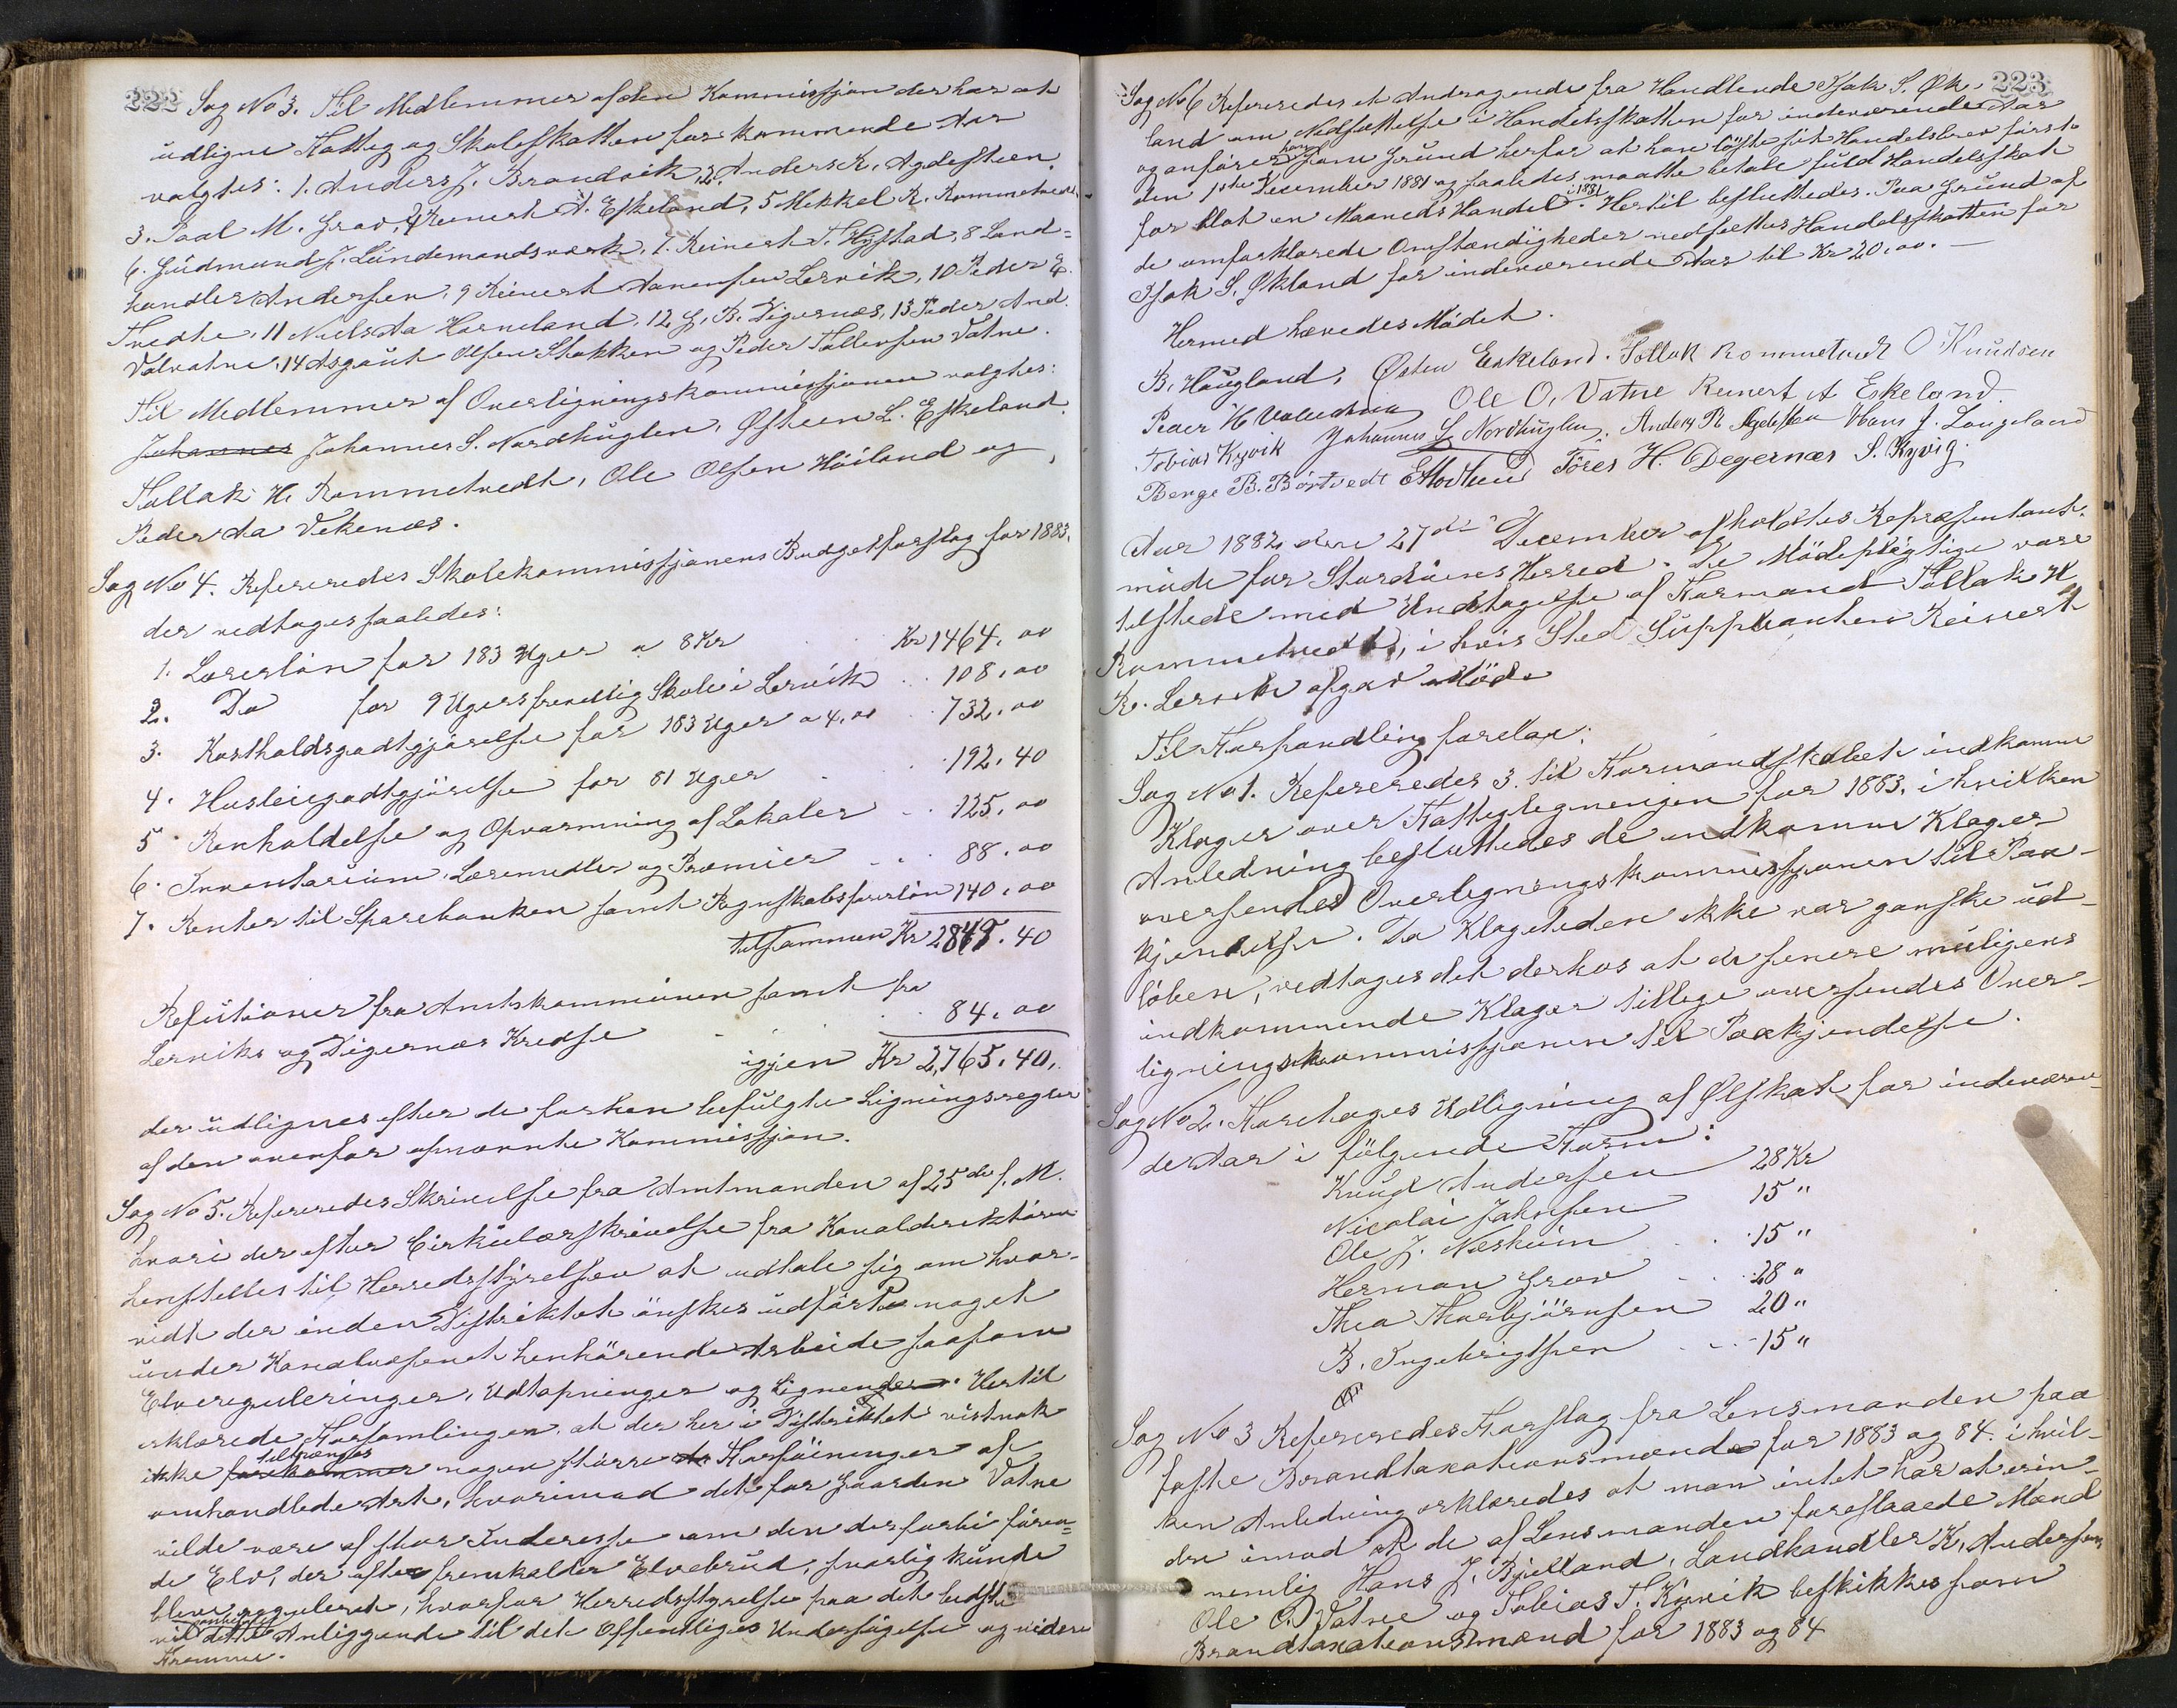 222
Sag No 3. Til Medlemmer af den Kommissjon der har at
udligne Fattig og Skoleskatten for kommende Aar
valgtes: 1. Anders J. Brandvik, 2. Anders R. Agdesteen
3. Paal M. Grov, 4 Reinert A. Eskeland, 5 Mikkel R. Rommetvedt
6. Gudmund J. Lundemandsværk, 7. Reinert T. Hystad, 8 Land-
handler Andersen, 9 Reinert Aanensen Lervik, 10 Peder E.
Tvedte, 11 Niels Aa Horneland, 12 G. B. Digernæs, 13 Peder And.
Valvatne, 14 Asgaut Olsen Stokken og Peder Tollevsen Vatne.
Til Medlemmer af Overligningskommissjonen valgtes:
Johannes Johannes S. Nordhuglen, Østeen L. Eskeland,
Tollak H. Rommetvedt, Ole Olsen Høiland og
Peder Aa Vekenæs.
Sag No 4. Refereredes Skolekommissjonens Budgetforslag for 1883,
der vedtoges saaledes:
1. Lærerløn for 183 Uger a 8 Kr Kr 1464,00
2. Do for 9 Ugers frivillig Skole i Lervik 108,00
3. Kostholdsgodtgjørelse for 183 Uger a 4,00 732,00
4. Husleiegodtgjørelse for 81 Uger 192,40
5 Renholdelse og Opvarmning af Lokaler 125,00
6. Inventarium, Læremidler og Præmier 88,00
7. Renter til Sparebanken samt Regnskabsførerløn 140,00
tilsammen Kr 2849.40
Refusioner fra Amtskommunen samt fra
Lerviks og Digernæs Kredse 84,00
igjen Kr 2,765,40,
der udlignes efter de forhen befulgte Ligningsregler
af den ovenfor opnævnte Kommissjon.
Sag No 5. Refereredes Skrivelse fra Amtmanden af 25de f. M.
hvori der efter Cirkulærskrivelse fra Kanaldirektøren
henstilles til Herredsstyrelsen at udtale sig om hvor-
vidt der inden Distriktet ønskes udført noget
under Kanalvæsenet henhørende Arbeide saasom
Elvereguleringer, Udtapninger og Lignende. Hertil
erklærede Forsamlingen, at der her i Distriktet vistnok
tiltrænges
ikke forekommer nogen større Forføininger af
omhandlede Art, hvorimod det for Gaarden Vatne
vilde være af stor Interesse om den der forbi føren-
de Elv, der ofte fremkalder Elvebrud, snarlig kunde
blive reguleret, hvorfor Herredsstyrelse paa det bedste
anbefaler
vil dette Anliggende til det Offentliges Undersøgelse og videre
Fremme.
223
Sag No 6 Refereredes et Andragende fra Handlende Isak S. Øk-
land om Nedsættelse i Handelsskatten for indeværende Aar
han
og anfører som Grund herfor at han løste sit Handelsbrev først
den 1ste Desember 1881 og saaledes maatte betale fuld Handelsskat
i 1881
for blot en Maaneds Handel. Hertil besluttedes. Paa Grund af
de omforklarede Omstændigheder nedsættes Handelsskatten for
Isak S. Økland for indeværende Aar til Kr 20.00.
Hermed hævedes Mødet.
B. Haugland, Østen Eskeland. Tollak Rommetvedt O Knudsen
Peder H Valvatna Ole O. Vatne Reinert A Eskeland.
Tobias Kyvik Johannes S Nordhuglen. Anders R Agdesteen Hans J. Langeland
Berge B. Børtvedt Tøres H. Degernæs S. Kyvig.
Aar 1882 den 27de December afholdtes Repræsentant-
møde for Stordøens Herred. De Mødepligtige vare
tilstede med Undtagelse af Formand Tollak H
Rommetvedt, i hvis Sted Suppleanten Reinert
R. Lervik afgav Møde
Til Forhandling forelaa:
Sag No 1. Refereredes 3. til Formandskabet indkomne
Klager over Fattigligningen for 1883, i hvilken
Anledning besluttedes de indkomne Klager
oversendes Overligningskommissjonen til Paa-
kjendelse. Da Klagetiden ikke var ganske ud-
løben, vedtages det derhos at de senere muligens
indkommende Klager tillige oversendes Over-
ligningskommissjonen til Paakjendelse.
Sag No 2. Foretages Udligning af Ølskat for indeværen-
de Aar i følgende Form:
Knud Andersen 28 Kr
Nicolai Jahnsen 15 "
Ole J. Næsheim 15 "
Herman Grov 28 "
Thea Thorbjørnsen 20 "
B. Ingebrigtsen 15 "
Sag No 3 Refereredes Forslag fra Lensmanden paa
faste Brandtaxationsmænd for 1883 og 84. i hvil-
ken Anledning erklæredes at man intet har at erin-
dre imod at de af Lensmanden foreslaaede Mænd
nemlig Hans J. Bjelland, Landhandler K. Andersen,
Ole O. Vatne og Tobias T. Kyvik beskikkes som
Brandtaxationsmænd for 1883 og 84